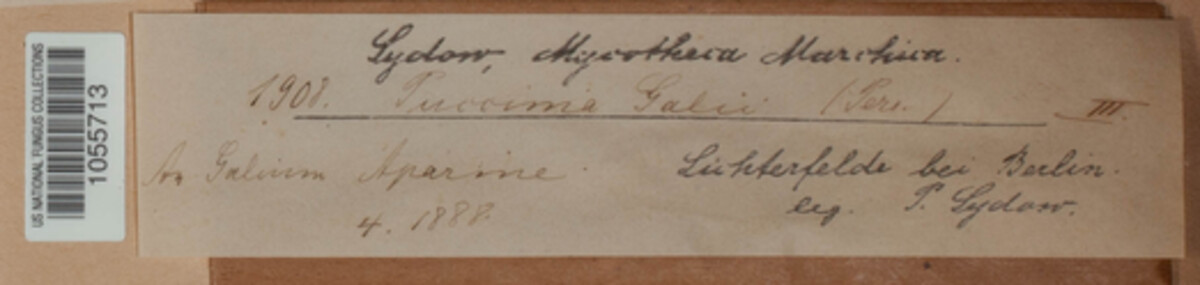 US NATIONAL FUNGUS COLLECTIONS
1055713
Sydow, Mycotheca Marchica.
1908. Puccinia Galii (Pers.) III.
An Galium Aparine. Lichterfelde bei Berlin.
4. 1888. leg. P. Sydow.